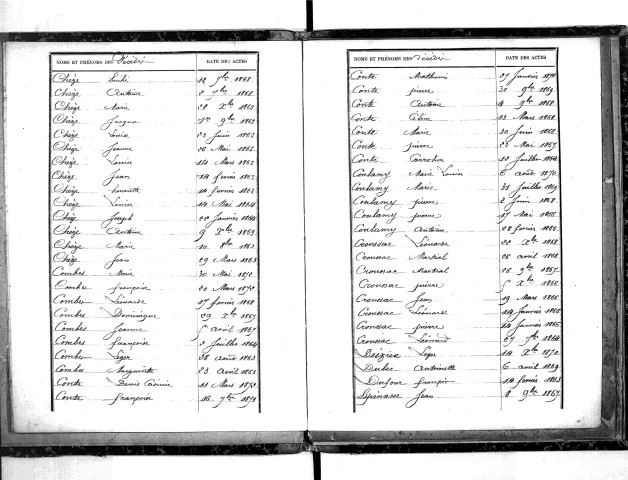 NOMS ET PRÉNOMS DES Décédés DATE DES ACTES
Chèze 12 7bre 1868
Chèze Antoine 2 7bre 1868
Chèze Marie 28 Xbre 1863
Chèze Jacques 1er 9bre 1863
Chèze Louise 23 Juin 1863
Chèze Jeanne 26 Mai
Chèze Louise 14 Mars 1863
Chèze Jean 14 fevrier 1863
Chèze Mariette 14 fevrier 1863
Chèze Louise 14 Mai 1864
Chèze Joseph 22 Janvier 1864
Chèze Antoine 9 Xbre 1863
Chèze Marie 10 8bre 1863
Chèze Jean 29 Mars 1863
Combes Marie 30 Mai 1872
Combes françoise 20 Mars 1872
Combes Léonarde 17 fevrier 1868
Combes Dominique 29 Xbre 1867
Combes Jeanne 5 avril 1867
Combes françoise 2 Juillet 1864
Combes Léger 28 août 1863
Combes Marguerite 23 Avril 1863
Conte Denis 11 Mars 1872
Conte françoise 16 7bre 1872
NOMS ET PRÉNOMS DES Décédés DATE DES ACTES
Conte Mathurin 27 Janvier 1870
Conte pierre 30 9bre 1869
Conte Antoine 4 9bre 1868
Conte Céline 13 Mars 1868
Conte Marie 30 Juin 1868
Conte pierre 23 Mai 1867
Conte 10 Juillet 1864
Coulamy Marie Louise 6 août 1870
Coulamy Marie 31 Juillet 1869
Coulamy pierre 2 Juin 1868
Coulamy pierre 17 Mai 1866
Coulamy Antoine 28 fevrier 1866
Croussac Léonarde 22 Xbre 1868
Croussac Martial 26 avril 1868
Croussac Martial 26 9bre 1867
Croussac pierre 5 Xbre 1866
Croussac Jean 19 Mars 1866
Croussac Léonarde 14 Janvier 1866
Croussac pierre 24 Janvier 1865
Croussac Léonard 27 7bre 1864
Léger 14 Xbre 1870
Antoinette 6 avril 1869
Dufour françois 14 fevrier 1863
Lépinasse Jean 8 9bre 1867